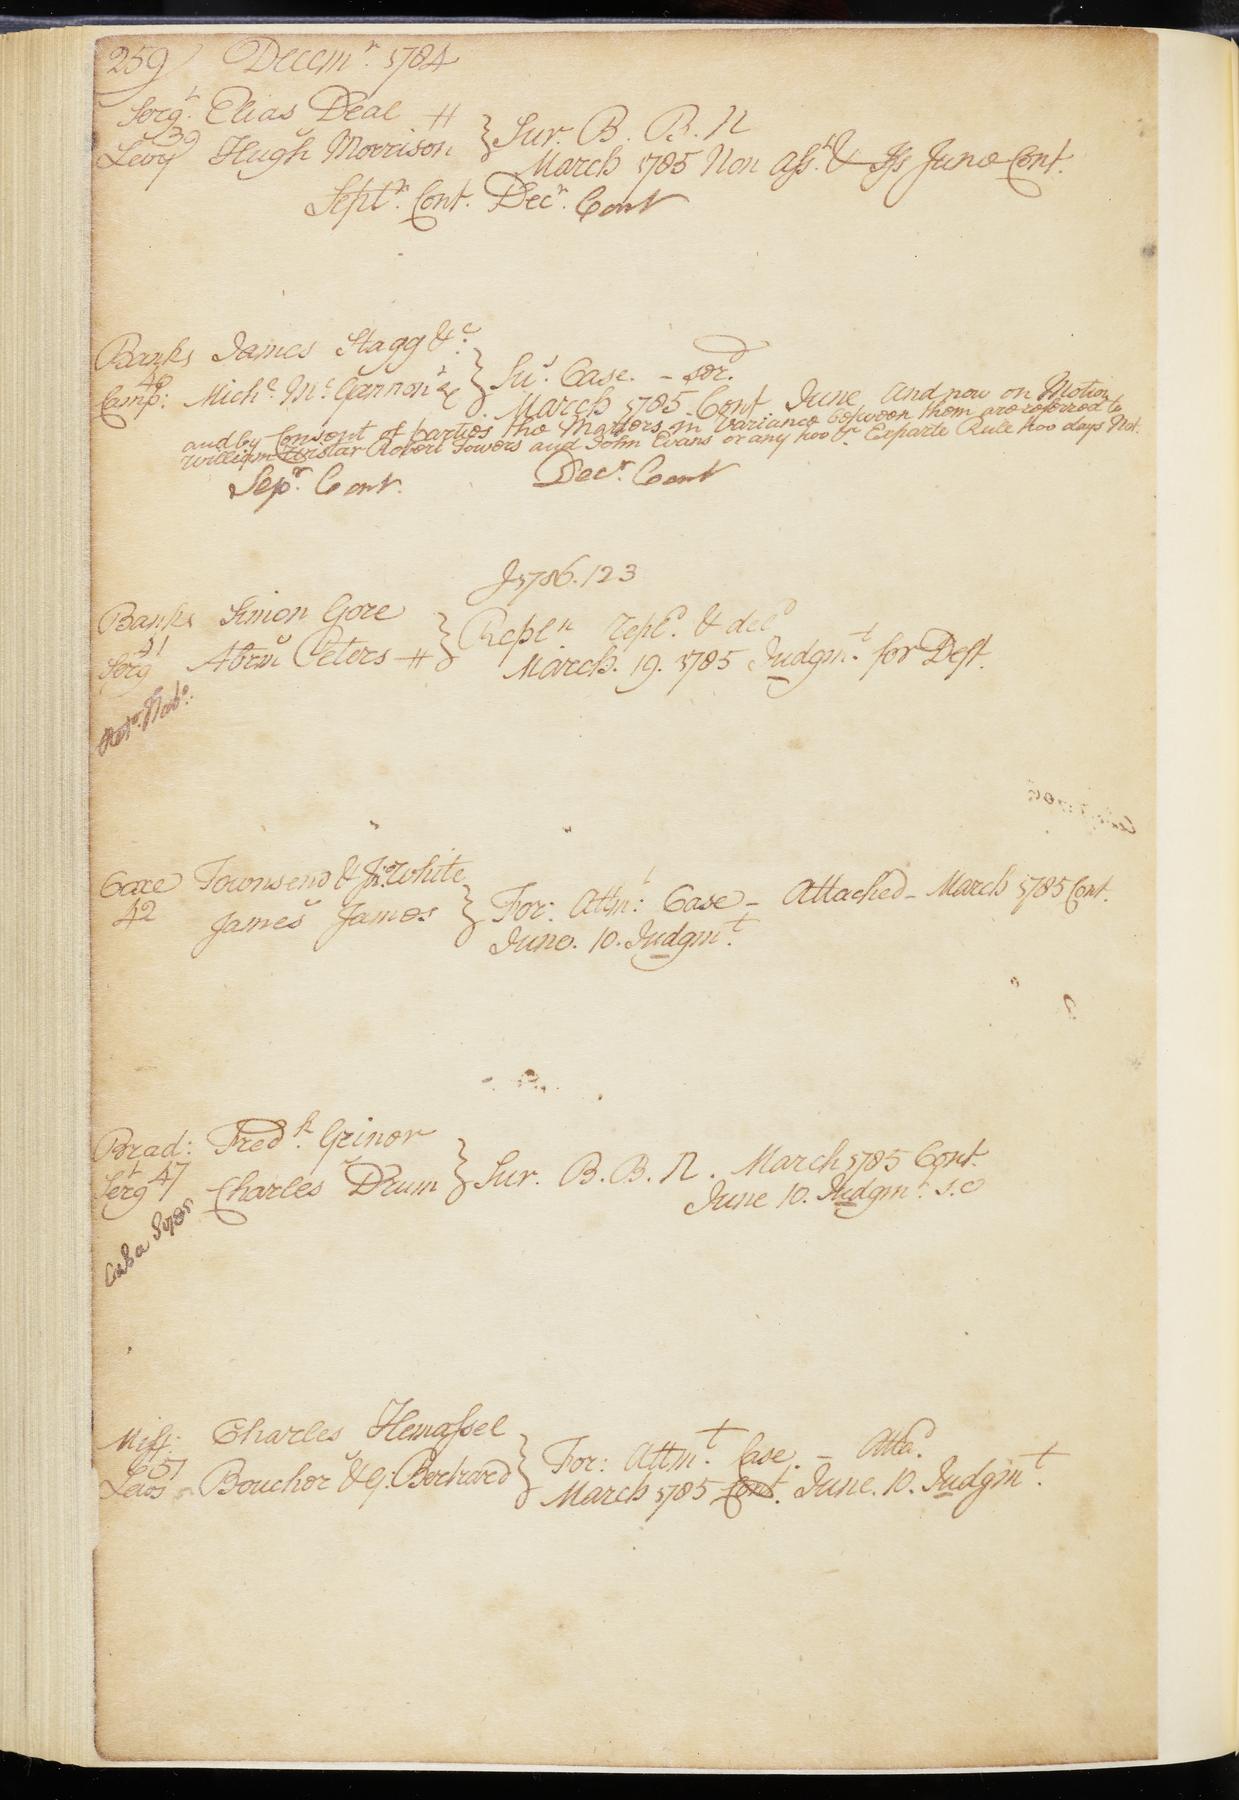 259 Decemr. 1784
Sergt. Elias Deal #
39
Levy v Hugh Morrison } Sur. B. B. N
March 1785 Non Asst. & Iss June Cont.
Septr. Cont. Decr. Cont
Banks James Stagg &c.
48
Camp: v Michl. Mc Gannon &c } Sus. Case. - ser.d
March 1785 Cont June and now on Motion
and by Consent of parties the Matters in Variance between them are referred to
William Robert Towers and John Evans or any two &c. Exparte Rule two days Not.
Sepr. Cont. Decr. Cont
J 1786. 123
Banks Simon Gore
51
Serg v Abrm Peters # } Repln repld. & deld
March. 19. 1785 Judgmt. for Deft.
Coxe Townsend & Jno. White
42 v James James } For: Attmt: Case - Attached - March 1785 Cont.
June. 10. Judgmt.
Brad: Fredk. Grinor
47
Sergt v Charles Drum } Sur. B. B. N. March 1785 Cont.
June 10. Judgmt. s. c
CaSa S 1785
Miff: Charles Hemassel
51
v Bouchor & G. Bertrard } For: Attmt. Case. - Attad.
March 1785 Cont. June. 10. Judgmt.